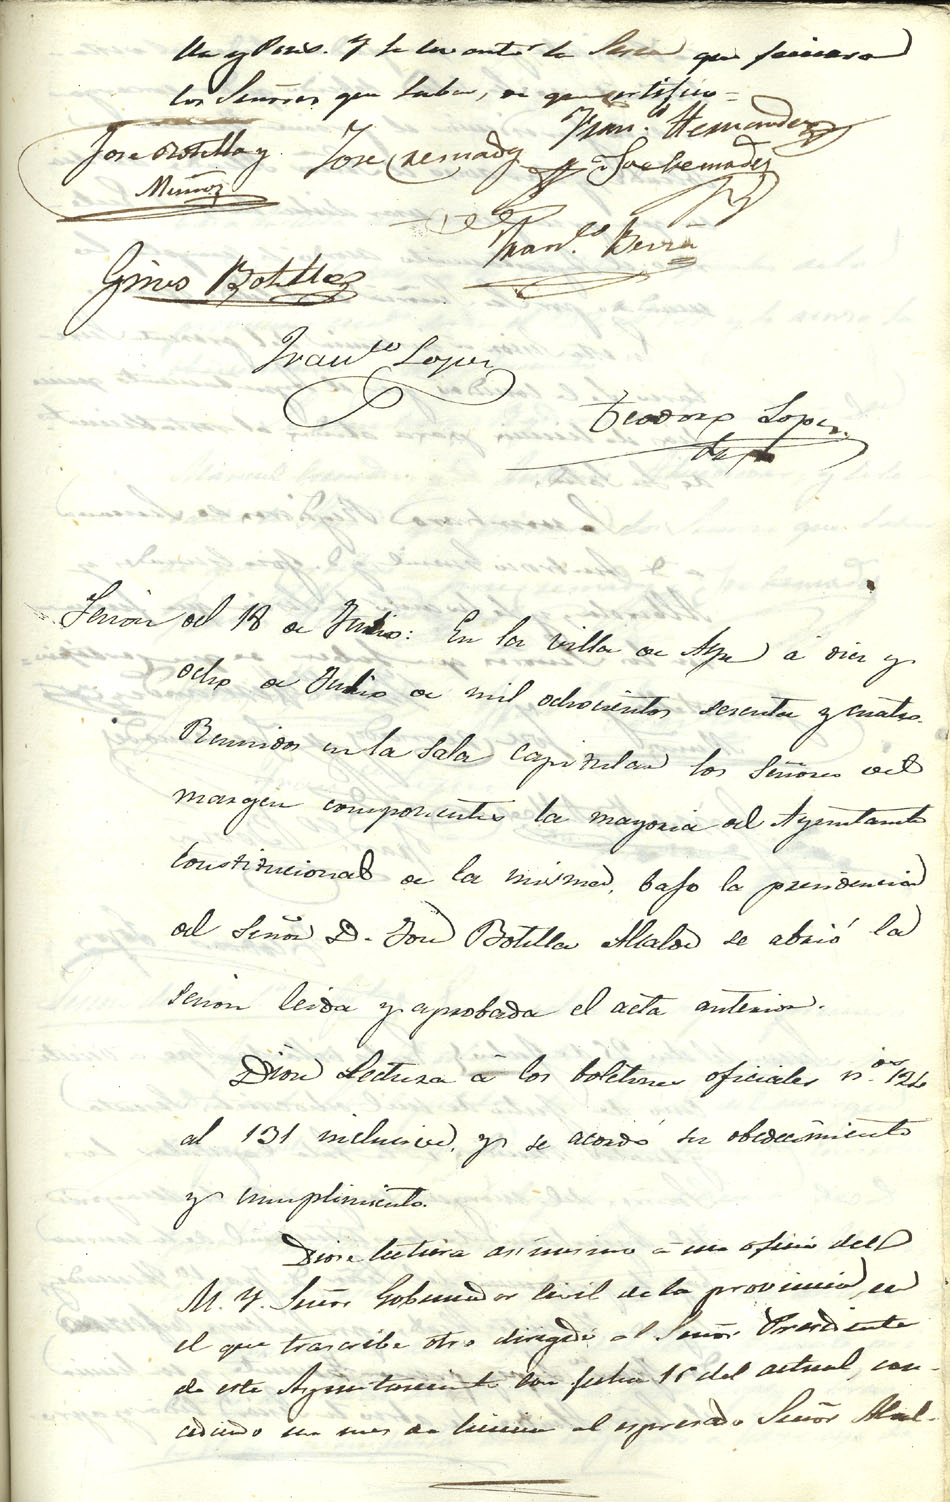 y se levantó la Sesion que firmaron
los Señores que saben, de que certifico =
Jose Botella y
Muñoz
Jose Cremades
Fran.co Hernandez
Jose Cremades
Fran.co Berná
Gines Botella
Fran.co Lopez
Teodoro Lopez
Sesion del 18 de Julio: En la villa de Aspe á diez y
ocho de Julio de mil ochocientos sesenta y cuatro.
Reunidos en la Sala Capitular los Señores del
margen componentes la mayoria del Ayuntamto
Constitucional de la misma, bajo la presidencia
del Señor D. José Botella Alcalde se abrió la
sesion leida y aprobada el acta anterior.
Diose Lectura á los boletines oficiales n.os 124
al 131 inclusive, y se acordó su obedecimiento
y cumplimiento.
Diose lectura asimismo á un oficio del
M. Y. Señor Gobernador Civil de la provincia, en
el que trascribe otro dirigido al Señor Presidente
de este Ayuntamiento con fecha 15 del actual, con-
cediendo un mes de licencia al espresado Señor Alcal-